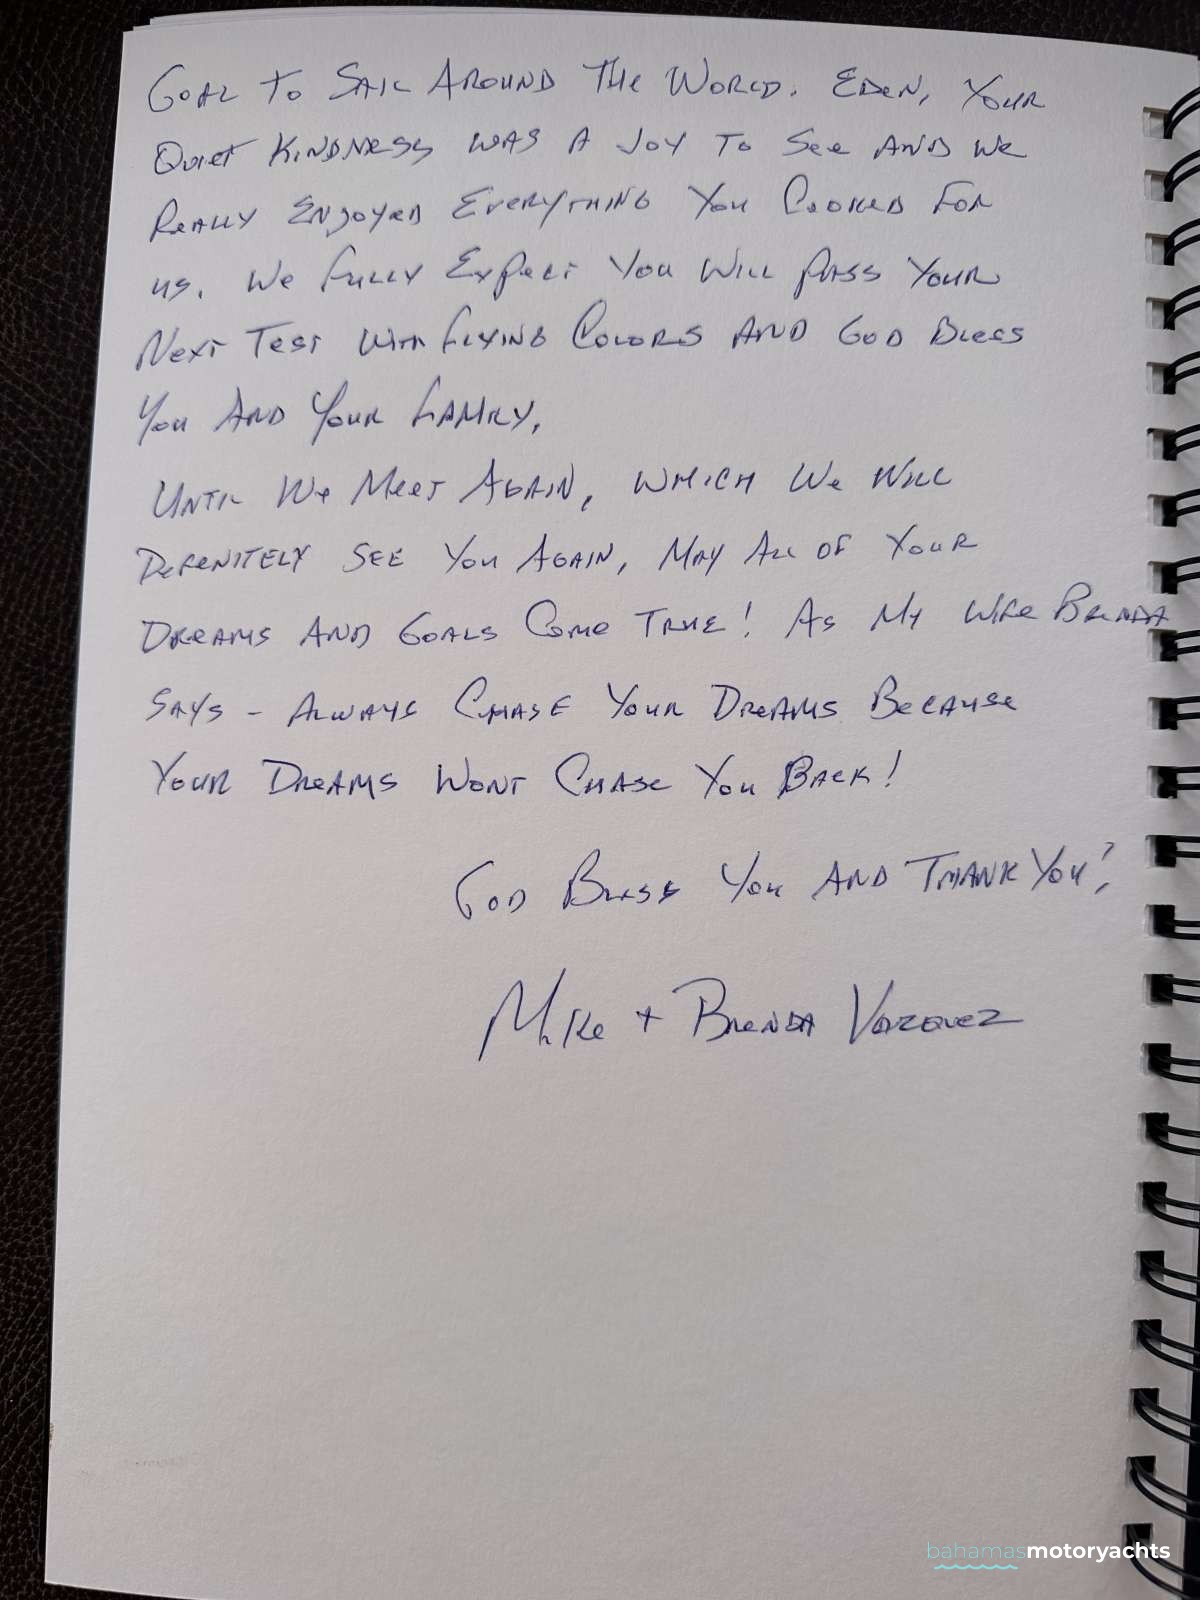 Goal to Sail Around the World. Eden, Your
Quiet Kindness was a Joy to See and We
Really Enjoyed Everything You Cooked for
us. We Fully Expect You Will Pass Your
Next Test With Flying Colors and God Bless
You and Your Family.
Until We Meet Again, which We Will
Defenitely See You Again, May All of Your
Dreams and Goals Come True! As My Wife Brenda
Says - Always Chase Your Dreams Because
Your Dreams Wont Chase You Back!
God Bless You and Thank You!
Mike + Brenda Vazquez
bahamasmotoryachts